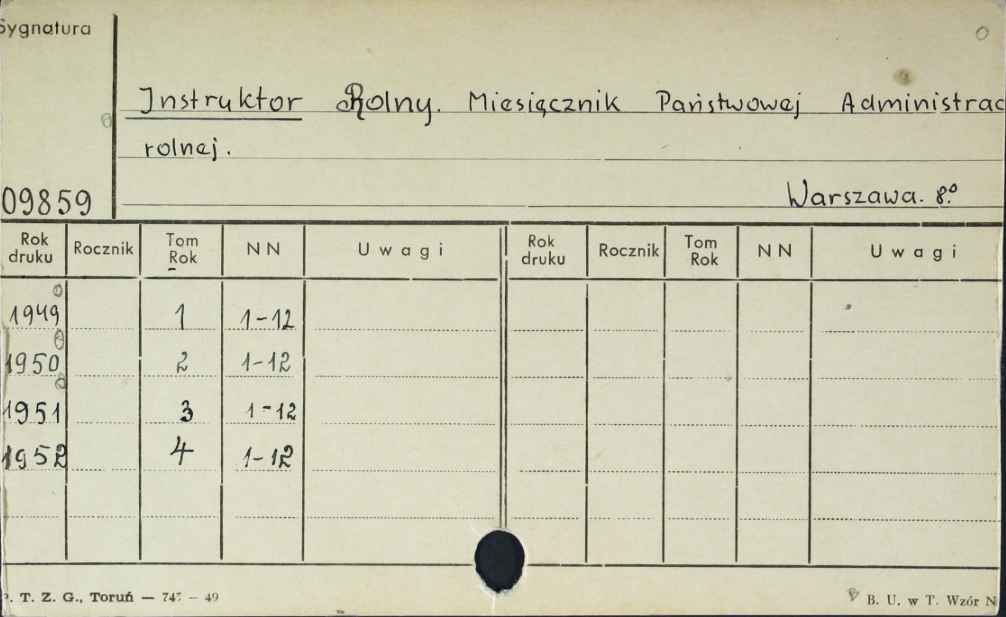 Sygnatura
Instruktor Rolny. Miesięcznik Państwowej Administrac
rolnej.
09859
Warszawa. 8º
Rok druku Rocznik Tom Rok NN Uwagi Rok druku Rocznik Tom Rok NN Uwagi
1949 1 1-12
1950 2 1-12
1951 3 1-12
1952 4 1-12
. T. Z. G., Toruń — 747 — 49
B. U. w T. Wzór N